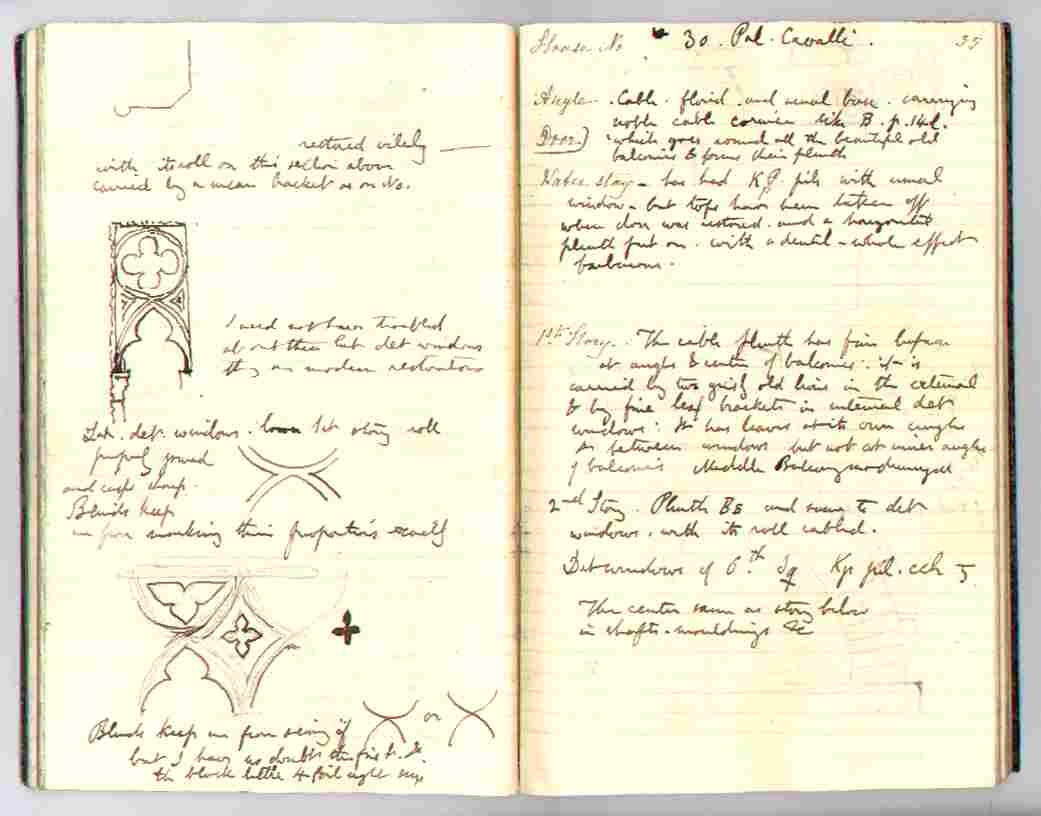 restored vilely
with its roll on this section above
carried by a mean bracket as on No.
I need not have troubled
about these 1st det windows
they are modern restorations
det. windows. 1st story roll
properly joined
and cusps
Blinds keep
me from making their proportions exactly
Blinds keep me from seeing if
or
but I have no doubt the first &
the black little 4 foil right
House No 30. Pal. Cavalli. 35
Angle. Cable. florid. and usual base. carrying
noble cable cornice like B. p. 142.
Door) which goes round all the beautiful old
balconies & forms their plinth
Water story - has had pils with usual
windows - but tops have been taken off
when door was restored. and a horizontal
plinth put on. with a dentil - whole effect
barbarous.
1st Story. The cable plinth has fine
at angles & center of balconies: it is
carried by two grisly old lions in the external
& by fine leaf brackets in internal det
windows: It has leaves at its own angles
& between windows but not at inner angles
of balconies Middle Balcony modernized
2nd Story. Plinth and to det
windows. with its roll cabled.
Det windows of 6th pil.
The center same as story below
in shafts - mouldings &c